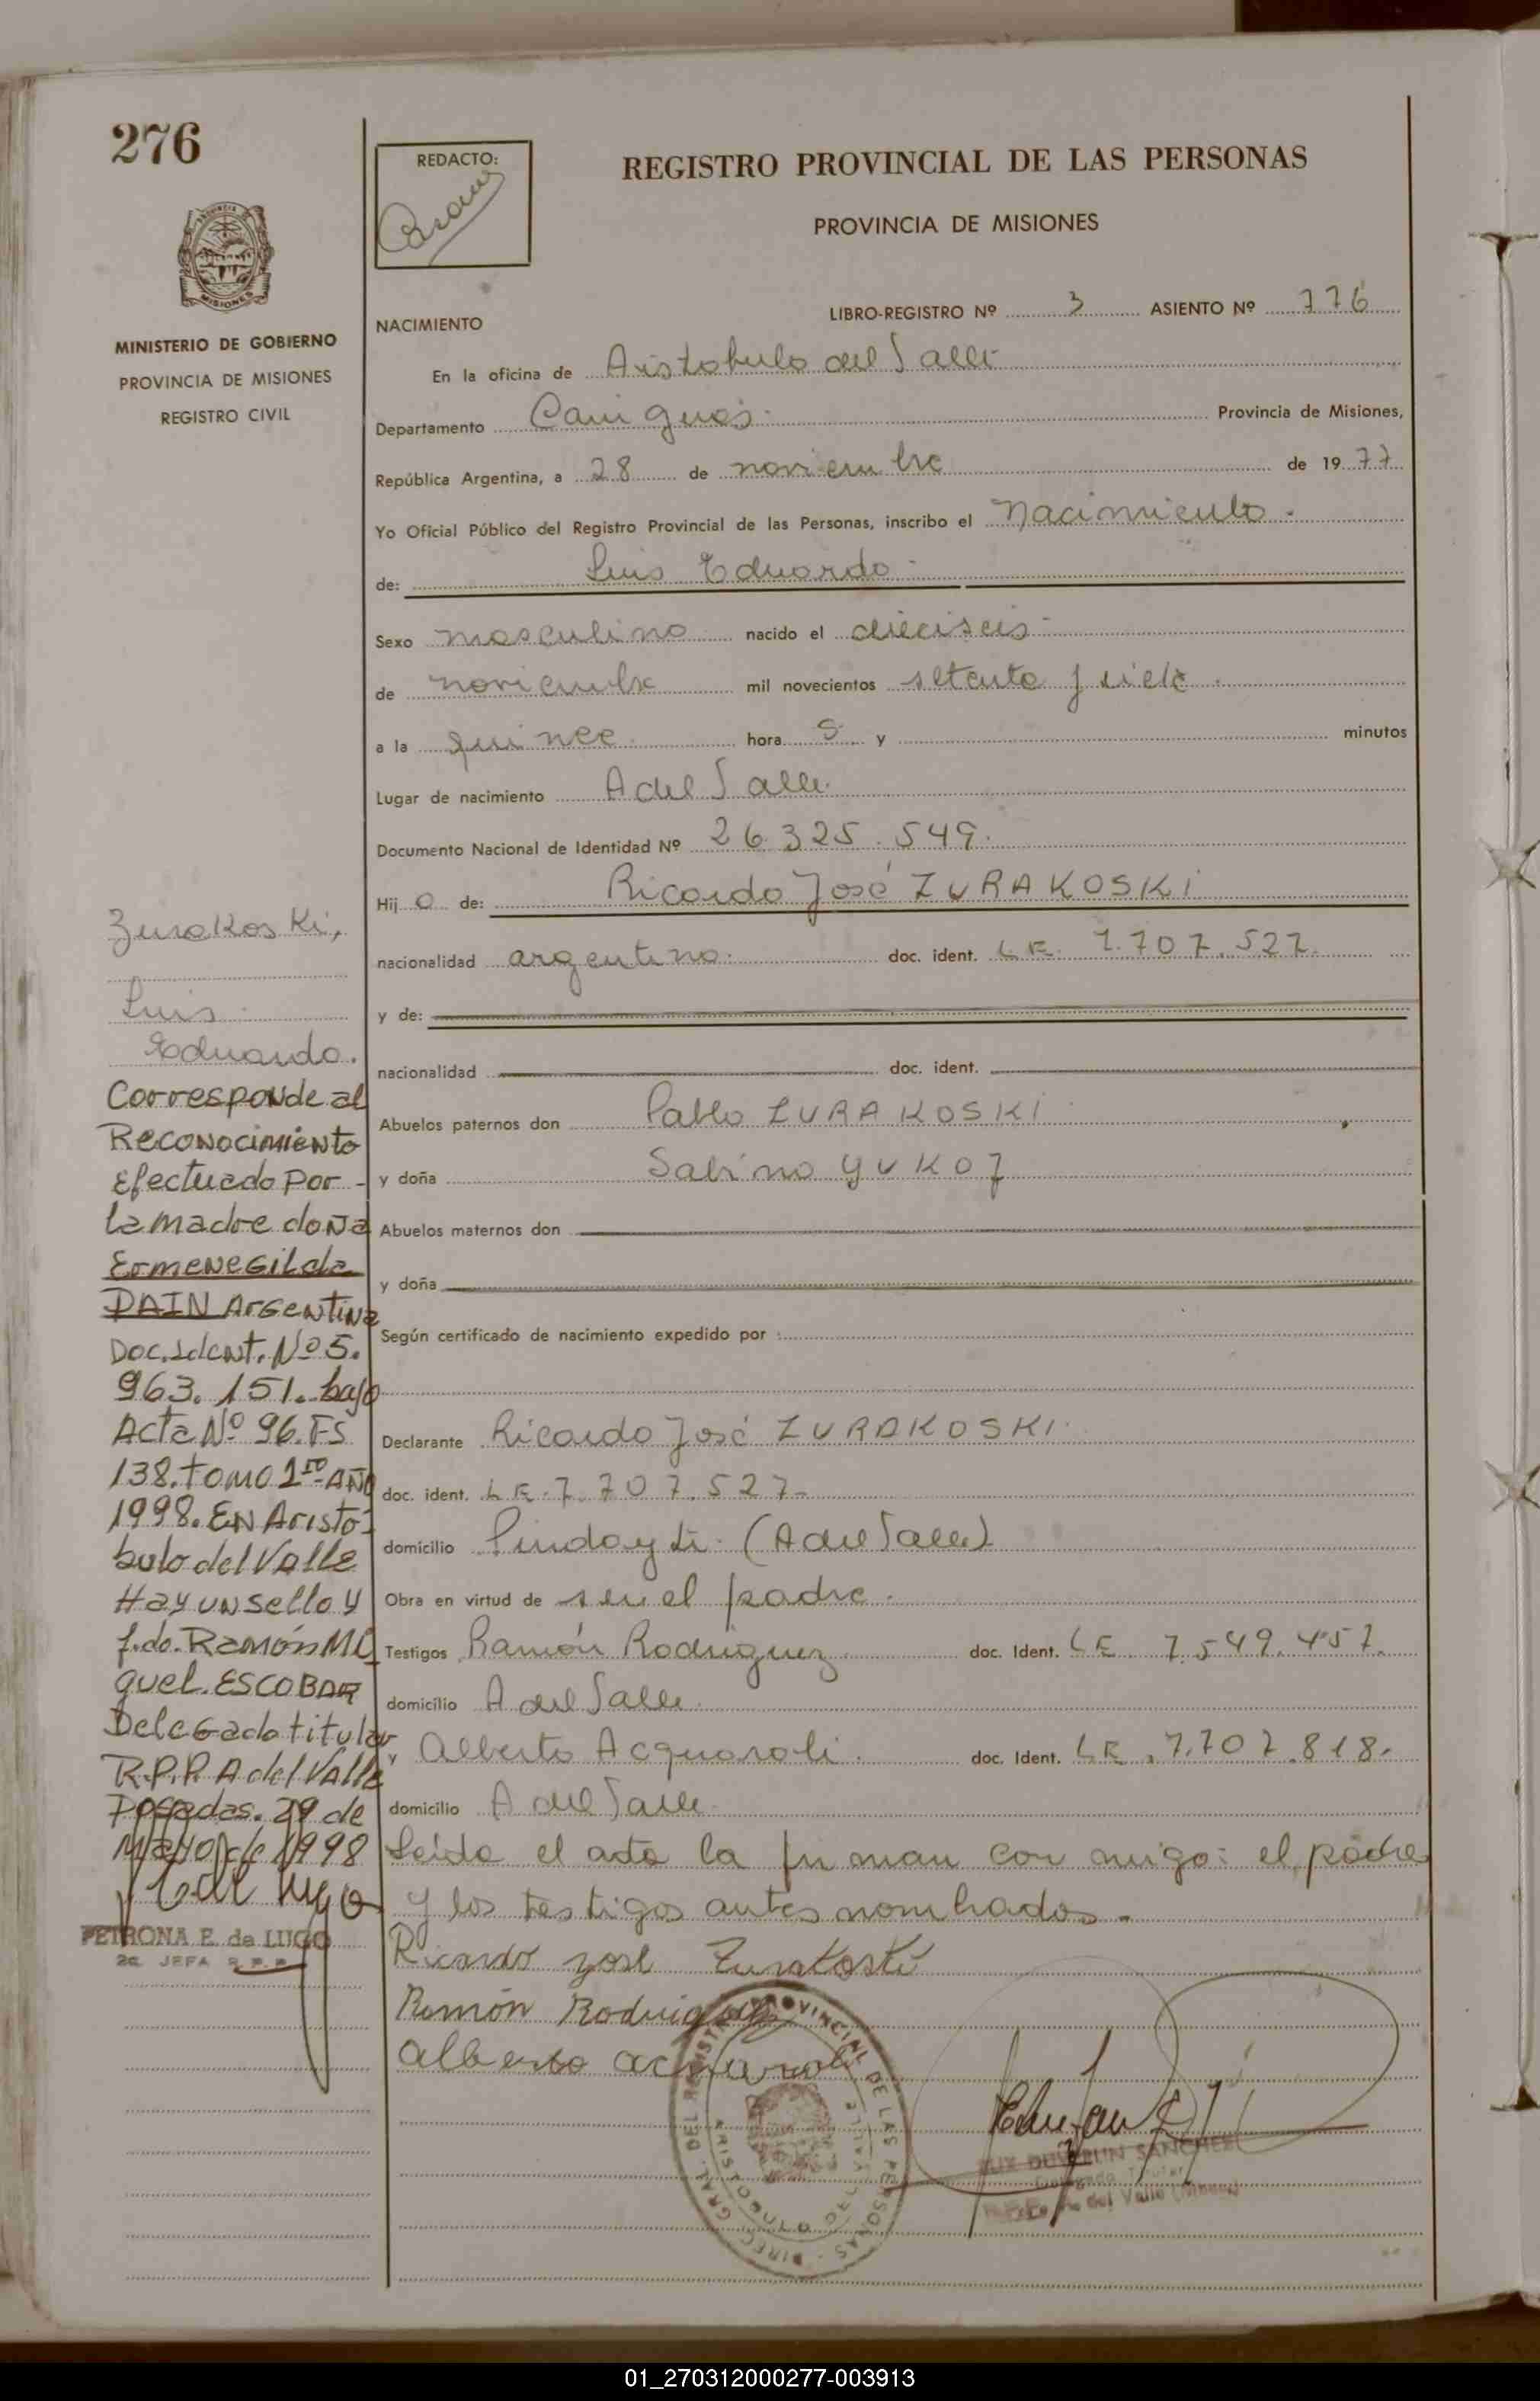 276
REDACTO:
REGISTRO PROVINCIAL DE LAS PERSONAS
PROVINCIA DE MISIONES
MISIONES
MINISTERIO DE GOBIERNO
PROVINCIA DE MISIONES
REGISTRO CIVIL
NACIMIENTO
LIBRO-REGISTRO Nº 3 ASIENTO Nº 776
En la oficina de Aristobulo del Valle
Departamento Cainguas. Provincia de Misiones,
República Argentina, a 28 de noviembre de 1977
Yo Oficial Público del Registro Provincial de las Personas, inscribo el Nacimiento.
de: Luis Eduardo
Sexo masculino nacido el dieciseis
de noviembre mil novecientos setenta y siete
a la quince hora s y minutos
Lugar de nacimiento A del Valle.
Documento Nacional de Identidad Nº 26.325.549.
Hij o de: Ricardo José ZURAKOSKI
nacionalidad argentino. doc. ident. L.E. 7.707.527.
y de:
nacionalidad doc. ident.
Abuelos paternos don Pablo ZURAKOSKI
y doña Sabina
Abuelos maternos don
y doña
Según certificado de nacimiento expedido por :
Declarante Ricardo José ZURAKOSKI.
doc. ident. L.E. 7.707.527.
domicilio Pindayti. (A del Valle)
Obra en virtud de ser el padre.
Testigos Ramón Rodriguez doc. Ident. L.E. 7.549.457.
domicilio A del Valle
y Alberto Acquaroli. doc. Ident. L.E. 7.707.818.
domicilio A del Valle.
Leída el acta la firman con migo: el padre
y los testigos antes nombrados.
Ricardo José Zurakoski
Ramón Rodriguez
Alberto
Zurakoski,
Luis
Eduardo.
Corresponde al
Reconocimiento
Efectuado Por -
la madre doña
Ermenegilda
DAIN Argentina
Doc. Ident. Nº 5.
963.151. bajo
Acta Nº 96. FS
138. tomo 1ro AÑO
1998. EN Aristo-
bulo del Valle
Hay un sello y
f.do. Ramón Mi
guel. ESCOBAR
Delegado titular
R.P.P. A del Valle
Posadas. 29 de
Mayo de 1998
PETRONA E. de LUGO
2a. JEFA R.P.P.
DIREC. GRAL. DEL REGISTRO PROVINCIAL DE LAS PERSONAS
ARISTOBULO DEL VALLE
SANCHEZ
Delegado Titular
del Valle (Mnes)
01_270312000277-003913